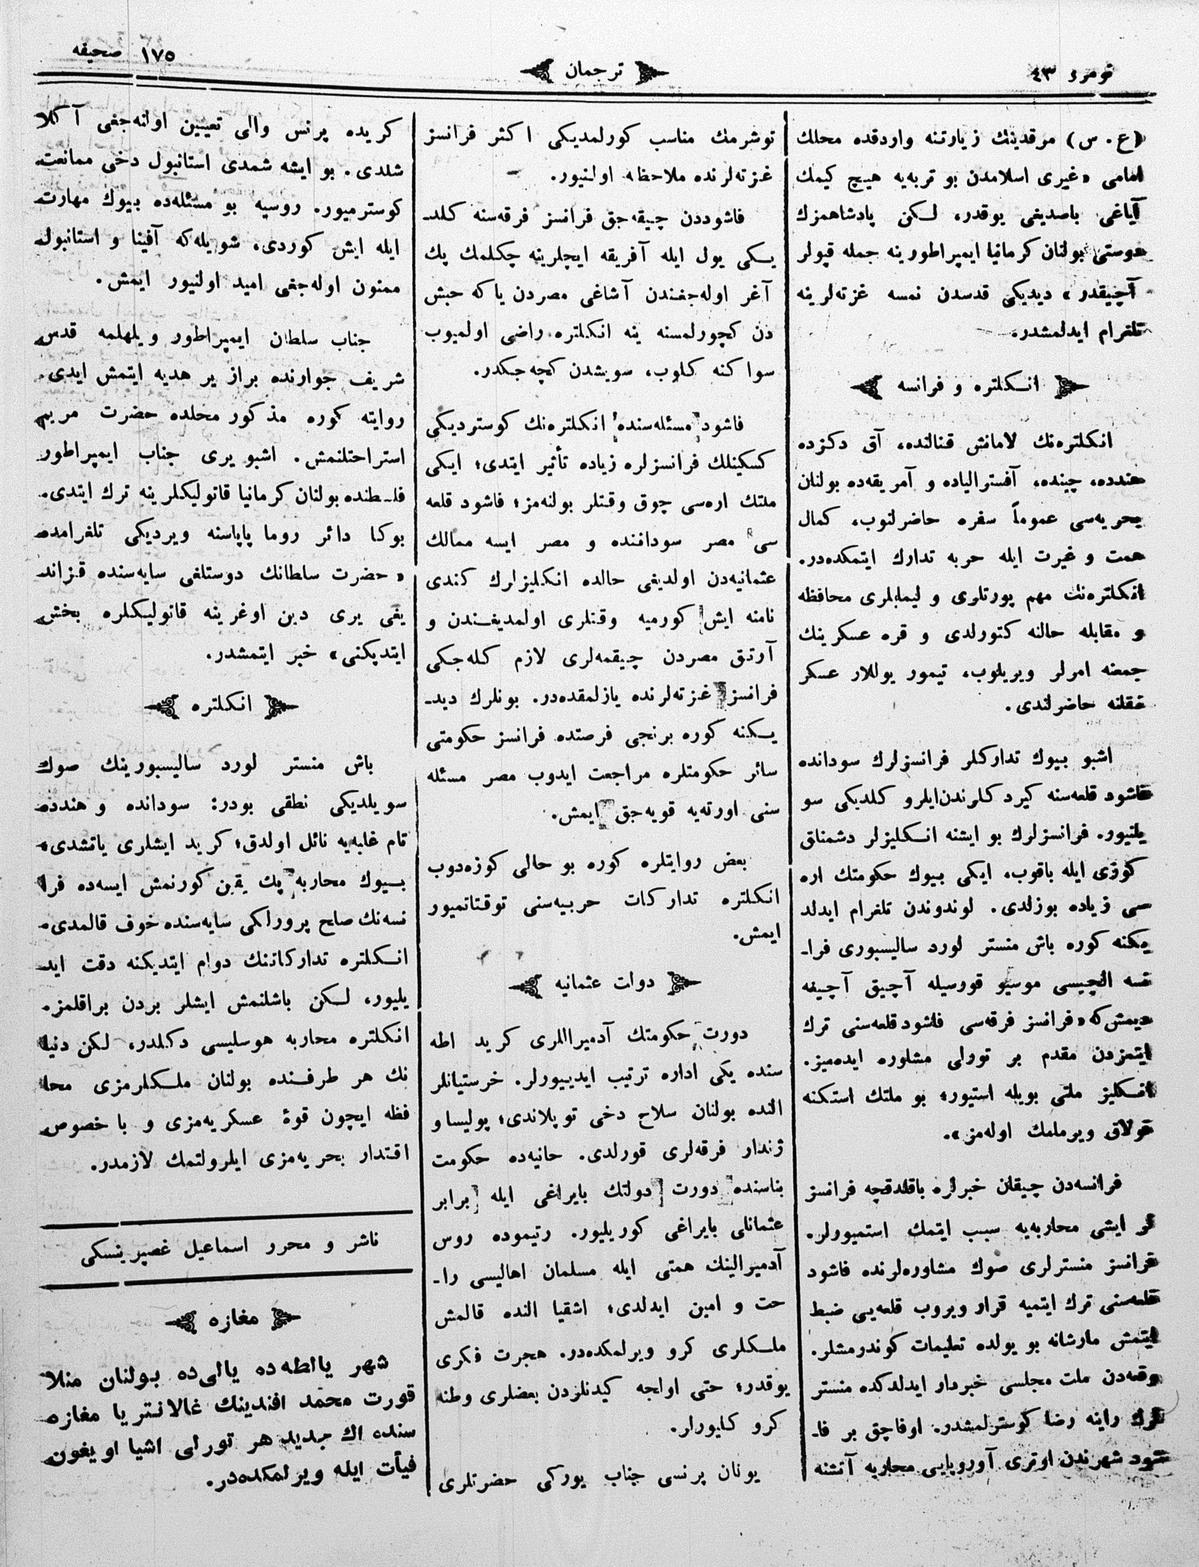 نومرو ٤٣
ترجمان
١٧٥ صحیفه
(ع . س) مرقدینك زیارتنه واردقده محلك
امامی «غیری اسلامدن بو تربه‌یه هیچ کیمك
آیاغی باصدیغی یوقدر، لـكن پادشاهمزك
دوستی بولنان کرمانیا ایمپراطورینه جمله قپولر
آچیقدر» دیدیکی قدسدن نمسه غزته‌لرینه
تلغرام ایدلمشدر.
انـكلتره و فرانسه
انكلتره‌نك لامانش قنالنده، آق دکزده
هندده، چینده، آفسترالیاده و آمریقه‌ده بولنان
بحریه‌سی عموماً سفره حاضرلنوب، کمال
همت و غیرت ایله حربه تدارك ایتمکده‌در.
انكلتره‌نك مهم پورتلری و لیمانلری محافظه
و مقابله حالنه کتورلدی و قره عسکرینك
جمعنه امرلر ویریلوب، تیمور یوللار عسکر
نقلنه حاضرلندی.
اشبو بیوك تدارکلر فرانسزلرك سودانده
فاشود قلعه‌سنه کیردکلرندن‌ایلرو کلدیکی سو
یلنیور. فرانسزلرك بو ایشنه انـكلیزلر دشمناق
کوزی ایله باقوب، ایکی بیوك حکومتك اره
سی زیاده بوزلدی. لوندوندن تلغرام ایدلد
یكنه کوره باش منستر لورد سالیسبوری فرا-
نسه الچیسی موسیو قورسیله آچیق آچیغه
دیمش‌که «فرانسز فرقه‌سی فاشود قلعه‌سنی ترك
ایتمزدن مقدم بر تورلی مشاوره ایده‌میز.
انـكلیز ملتی بویله استیور؛ بو ملتك استكنه
قولاق ویرمامك اوله‌مز».
فرانسه‌دن چیقان خبرلره باقلدقچه فرانسز
لر ایشی محاربه‌یه سبب ایتمك استمیورلر.
فرانسز منسترلری صوك مشاوره‌لرنده فاشود
قلعه‌سنی ترك ایتمیه قرار ویروب قلعه‌یی ضبط
ایتمش مارشانه بو یولده تعلیمات کوندرمشلر.
وقعه‌دن ملت مجلسی خبردار ایدلدکده منستر
لرك رأینه رضا کوسترلمشدر. اوفاچق بر فا-
شود شهرندن اوتری آوروپایی محاربه آتشنه
توشرمك مناسب کورلمدیکی اکثر فرانسز
غزته‌لرنده ملاحظه اولنیور.
فاشوددن چیقه‌جق فرانسز فرقه‌سنه کلد-
یـكی یول ایله آفریقه ایچلرینه چکلمك پك
آغر اوله‌جغندن آشاغی مصردن یاکه حبش
دن کچورلمسنه ینه انكلتره راضی اولمیوب
سواکنه کلوب، سویشدن کچه‌جکدر.
فاشود مسئله‌سنده انكلتره‌نك کوستردیکی
کسکینلك فرانسزلره زیاده تأثیر ایتدی؛ ایکی
ملتك اره‌سی چوق وقتلر بولنه‌مز؛ فاشود قلعه
سی مصر سودافنده و مصر ایسه ممالك
عثمانیه‌دن اولدیغی حالده انکلیزلرك کندی
نامنه ایش کورمیه وقتلری اولمدیغـندن و
آرتـق مصردن چیقمه‌لری لازم کله‌جکی
فرانسز غزته‌لرنده یازلمقده‌در. بونلرك دید-
یـكنه کوره برنجی فرصتده فرانسز حکومتی
سائر حکومتلره مراجعت ایدوب مصر مسئله
سنی اورته‌یه قویه‌جق ایمش.
بعض روایتلره کوره بو حالی کوزه‌دوب
انكلتره تدارکات حربیه‌سنی توقتاتمیور
ایمش.
دولت عثمانیه
دورت حکومتك آدمیراللری کرید اطه
سنده یکی اداره ترتیب ایدییورلر. خرستیانلر
النده بولنان سلاح دخی توپلاندی؛ پولیسا و
ژندار فرقه‌لری قورلدی. حانیه‌ده حکومت
بناسنده دورت دولتك بایراغی ایله برابر
عثمانلی بایراغی کوریلیور. رتیموده روس
آدمیرالینك همتی ایله مسلمان اهالیسی را-
حت و امین ایدلدی؛ اشقیا النده قالمش
ملـكلری کرو ویرلمکده‌در. هجرت فکری
یوقدر؛ حتی اولجه کیدنلردن بعضلری وطنه
کرو کلیورلر.
یونان پرنسی جناب یورکی حضرتلری
کریده پرنس والی تعیین اولنه‌جغی آکلا
شلدی. بو ایشه شمدی استانبول دخی ممانعت
کوسترمیور. روسیه بو مسئله‌ده بیوك مهارت
ایله ایش کوردی، شویله‌که آفینا و استانبول
ممنون اوله‌جغی امید اولنیور ایمش.
جناب سلطان ایمپراطور ویلهلمه قدس
شریف جوارنده براز یر هدیه ایتمش ایدی.
روایته کوره مذکور محلده حضرت مریم
استراحتلنمش. اشبو یری جناب ایمپراطور
فلـطنده بولنان کرمانیا قاتولیکلرینه ترك ایتدی.
بوکا دائر روما پاپاسنه ویردیکی تلغرامده
«حضرت سلطانك دوستلغی سایه‌سنده قزاند
یغی یری دین اوغرینه قاتولیکلره بخش
ایتدیکنی» خبر ایتمشدر.
انكلتره
باش منستر لورد سالیسبورینك صوك
سویلدیکی نطقی بودر: سودانده و هندده
تام غلبه‌یه نائل اولدق؛ کرید ایشلری یاتشدی.
بـیوك محاربه پك یقین کورنمش ایسه‌ده فرا
نسه‌نك صلح پرورلکی سایه‌سنده خوف قالمدی.
انـكلتره تدارکاتنك دوام ایتدیکنه دقت اید-
یلیور، لـكن باشلنمش ایشلر بردن براقلمز.
انكلتره محاربه هوسلیسی دکلدر، لكن دنیا
نك هر طرفـنده بولنان ملـكلرمزی محا
فظه ایچون قوۀ عسکریه‌مزی و با خصوص
اقتدار بحریه‌مزی ایلرولتمك لازمدر.
ناشر و محرر اسماعیل غصپرینسكی
مغازه
شهر یالطه‌ده یالی‌ده بولنان منلا
قورت محمد افندینك غالانتریا مغازه
سنده اك جدید هر تورلی اشیا اویغون
فیأت ایله ویرلمكده‌در.